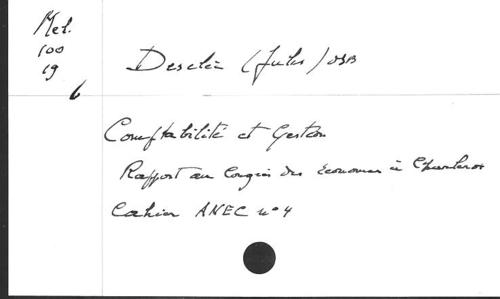 Mel.
100
19
6
Desclée (Jules) OSB
Comptabilité et Gestion
Rapport au Congrès des économes à Charleroi
Cahier ANEC n° 4